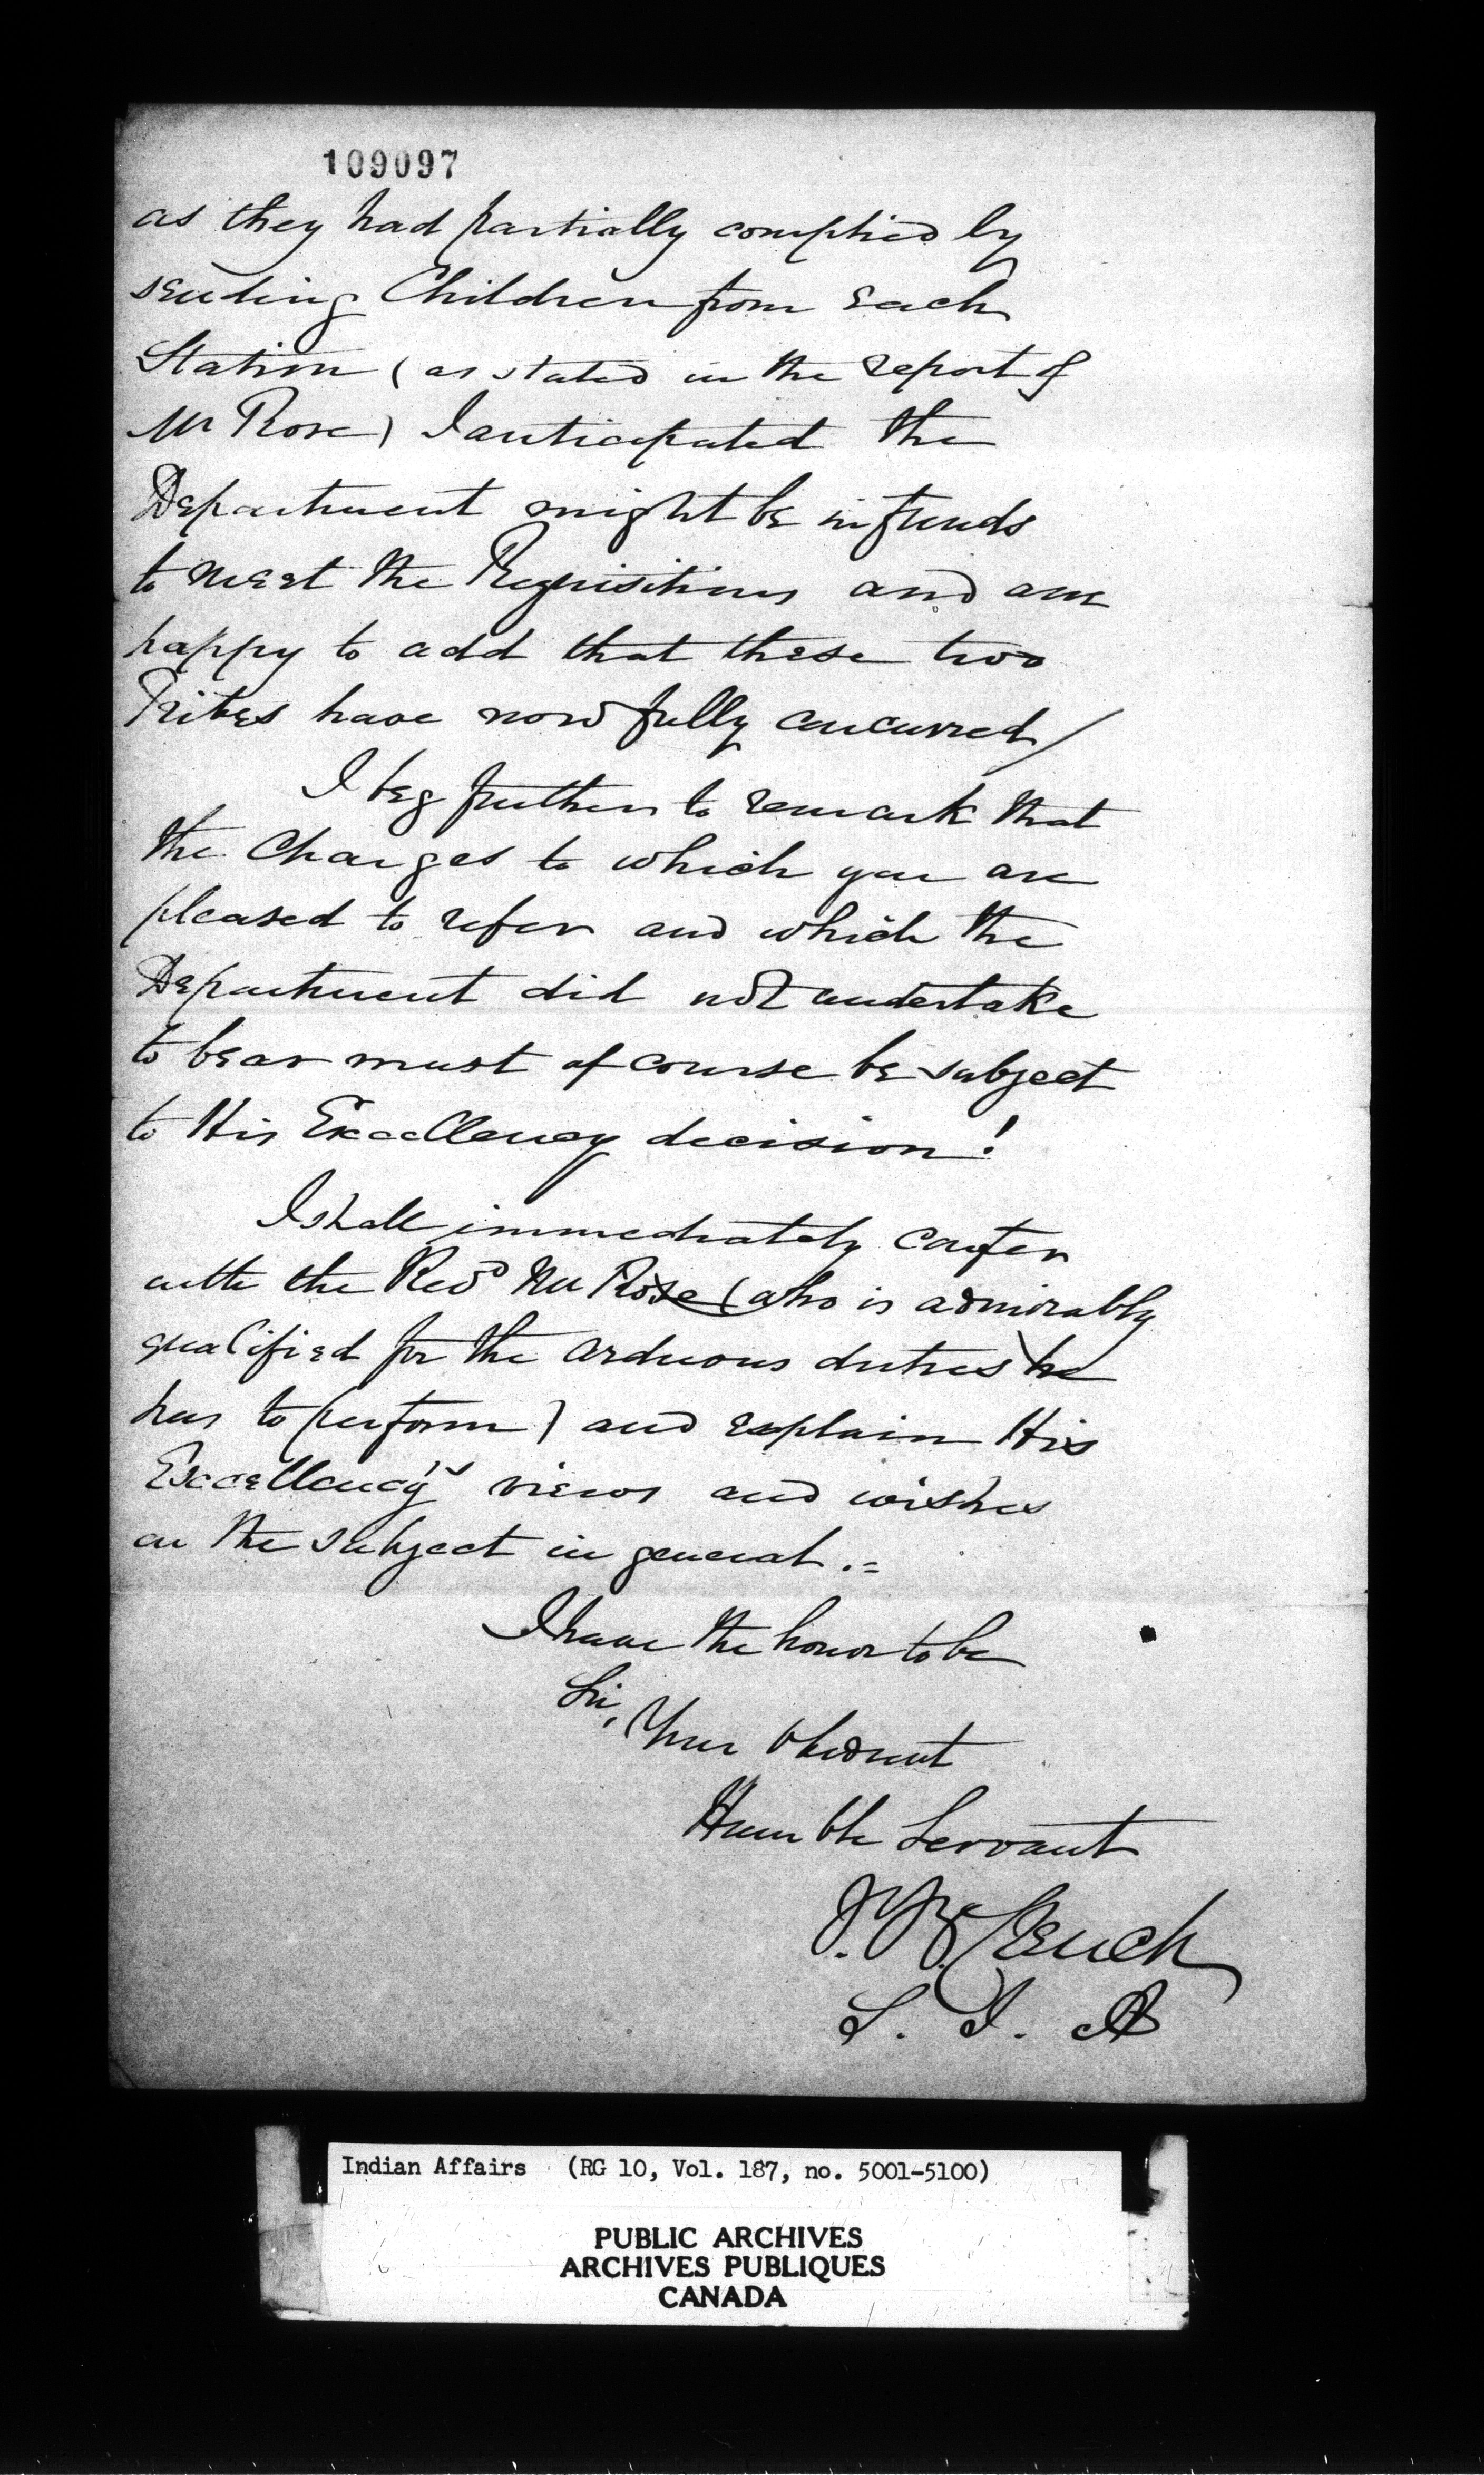 109097
as they had partially complied by
sending Children from each
Station (as stated in the report of
Mr Rose) I anticipated the
Department might be in funds
to meet the Requisitions and am
happy to add that these two
Tribes have now fully concurred/
I beg further to remark that
the Charges to which you are
pleased to refer and which the
Department did not undertake
to bear must of course be subject
to His Excellency decision!
I shall immediately confer
with the Revd Mr Rose (who is admirably
qualified for the arduous duties he
has to perform) and explain His
Excellency's views and wishes
on the subject in general.=
I have the honor to be
Sir,
Your Obedient
Humble Servant
J. B. Clench
S. I. A
Indian Affairs (RG 10, Vol. 187, no. 5001-5100)
PUBLIC ARCHIVES
ARCHIVES PUBLIQUES
CANADA